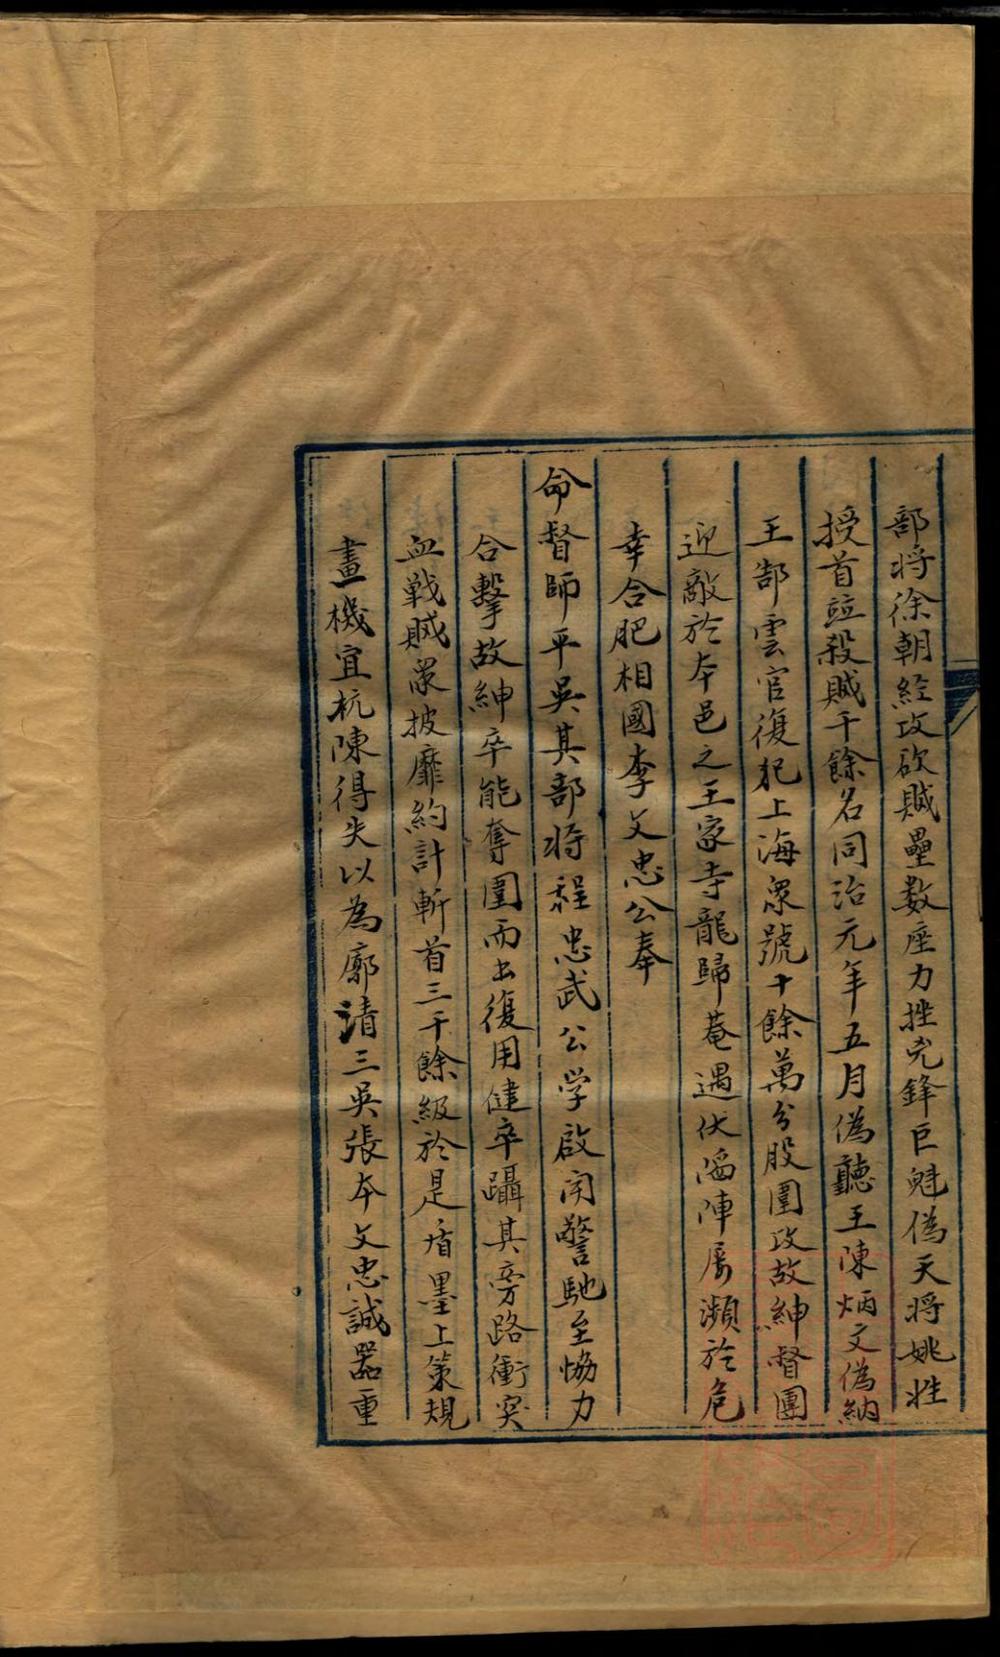 部将徐朝経攻砍賊壘数座力挫兇鋒巨魁偽天将姚姓
授首竝殺賊千餘名同治元年五月偽聽王陳炳文偽納
王郜雲官復犯上海衆號十餘萬分股圍攻故紳督團
迎敵於本邑之王家寺龍歸菴遇伏陷陣屢瀕於危
幸合肥相國李文忠公奉
命督師平吳其部将程忠武公学啟闻警馳至恊力
合擊故紳卒能奪圍而出復用健卒躡其旁路衝突
血戦賊衆披靡約計斬首三千餘級於是盾墨上策規
畫機宜杭陳得失以為廓清三吳張本文忠誠器重